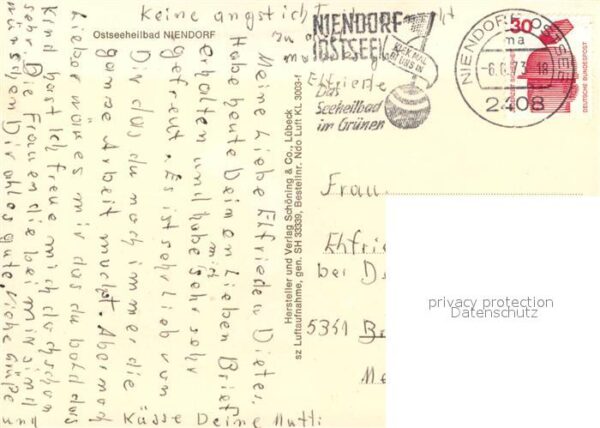 Ostseeheilbad NIENDORF
Keine angst ich
Elfriede
Meine Liebe Elfriede u Dieter,
Habe heute Deinen Lieben Brief
erhalten und habe mich sehr
gefreut. Es ist sehr lieb von
Dir das du noch immer die
ganze Arbeit machst. Aber noch
Lieber wäre es mir das du bald das
Kind hast ich freue mich doch schon
sehr Die Frauen die bei mir sind
wünschen Dir alles gute. Viele Grüße und
Küsse Deine Mutti
Hersteller und Verlag Schöning & Co., Lübeck
sz Luftaufnahme, gen. SH 33339, Bestellnr. Ndo Luft KL 3003-f
NIENDORF
(OSTSEE)
Das
Seeheilbad
im Grünen
NIENDORF OSTSEE
ma
-6.6.73-18
2408
30
DEUTSCHE BUNDESPOST
Frau
Elfrie
bei D
5351 B
Me
privacy protection
Datenschutz